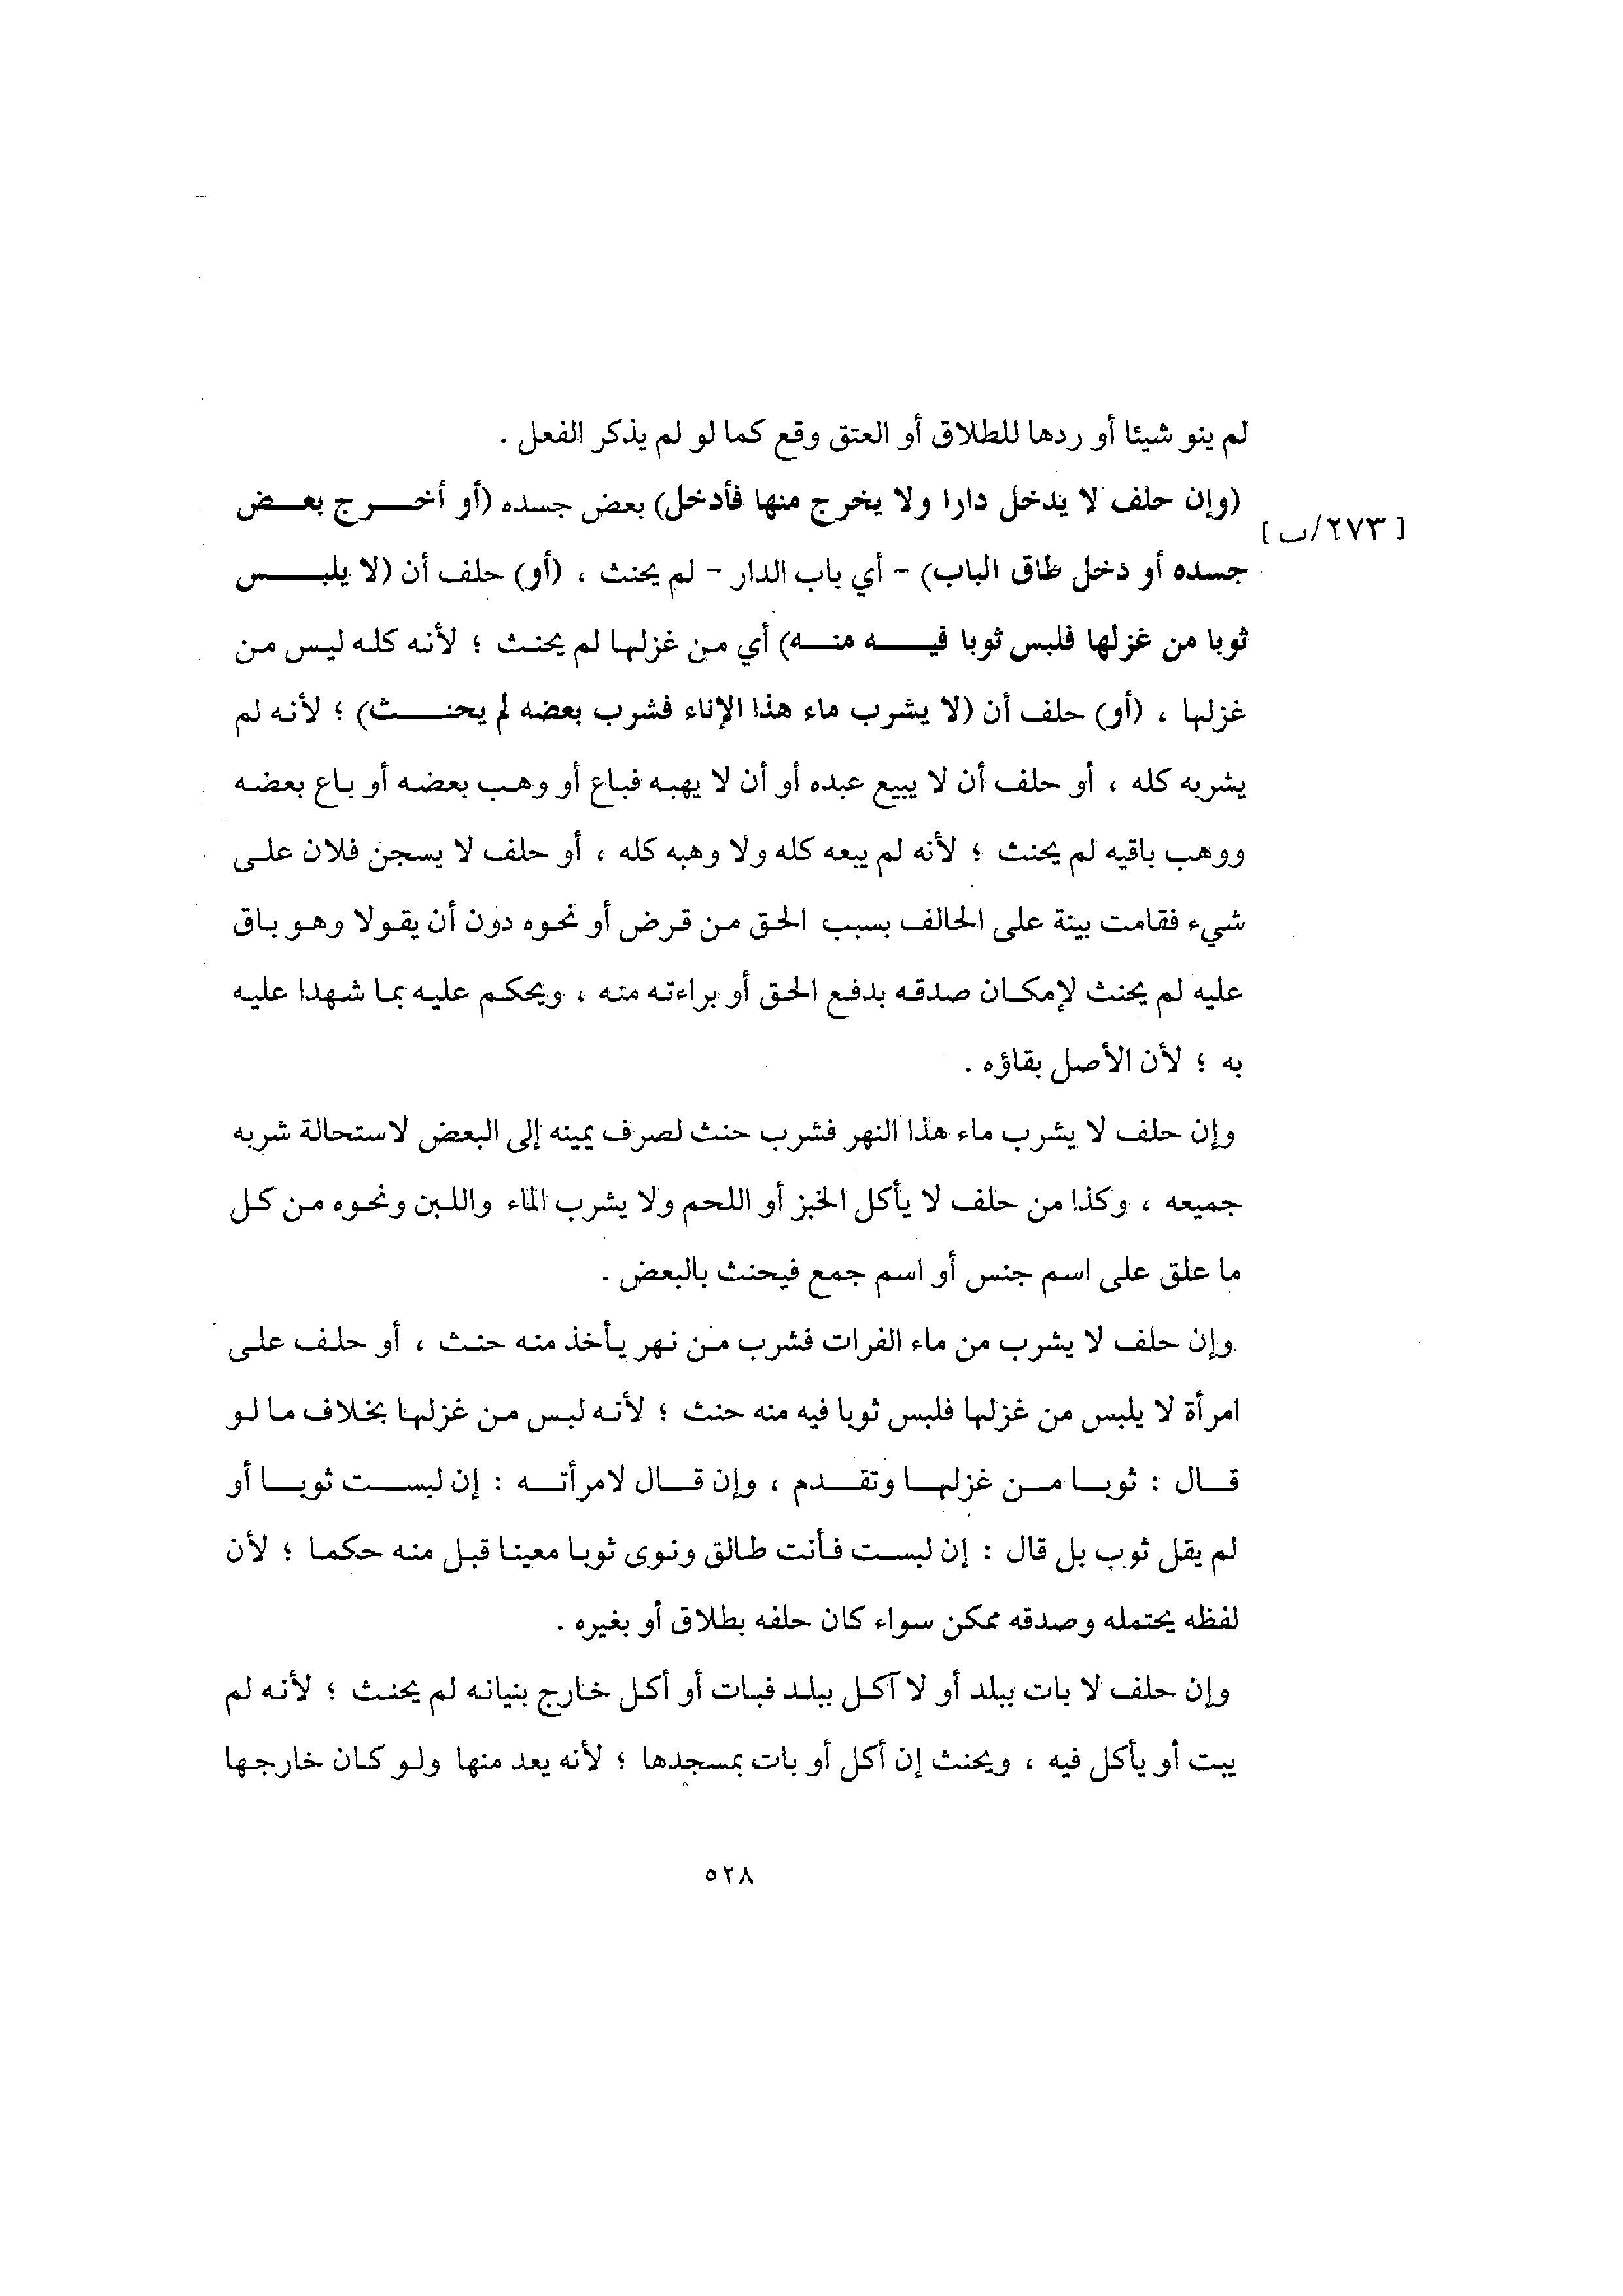 لم ينو شيئا أو ردها للطلاق أو العتق وقع كما لو لم يذكر الفعل .
(وإن حلف لا يدخل دارا ولا يخرج منها فأدخل) بعض جسده (أو أخرج بعض
[ ٢٧٣/ب]
جسده أو دخل طاق الباب) - أي باب الدار - لم يحنث ، (أو) حلف أن (لا يلبس
ثوبا من غزلها فلبس ثوبا فيه منه) أي من غزلها لم يحنث ؛ لأنه كله ليس من
غزلها ، (أو) حلف أن (لا يشرب ماء هذا الإناء فشرب بعضه لم يحنث) ؛ لأنه لم
يشربه كله ، أو حلف أن لا يبيع عبده أو أن لا يهبه فباع أو وهب بعضه أو باع بعضه
ووهب باقيه لم يحنث ؛ لأنه لم يبعه كله ولا وهبه كله ، أو حلف لا يسجن فلان على
شيء فقامت بينة على الحالف بسبب الحق من قرض أو نحوه دون أن يقولا وهو باق
عليه لم يحنث لإمكان صدقه بدفع الحق أو براءته منه ، ويحكم عليه بما شهدا عليه
به ؛ لأن الأصل بقاؤه .
وإن حلف لا يشرب ماء هذا النهر فشرب حنث لصرف يمينه إلى البعض لاستحالة شربه
جميعه ، وكذا من حلف لا يأكل الخبز أو اللحم ولا يشرب الماء واللبن ونحوه من كل
ما علق على اسم جنس أو اسم جمع فيحنث بالبعض .
وإن حلف لا يشرب من ماء الفرات فشرب من نهر يأخذ منه حنث ، أو حلف على
امرأة لا يلبس من غزلها فلبس ثوبا فيه منه حنث ؛ لأنه لبس من غزلها بخلاف ما لو
قال : ثوبا من غزلها وتقدم ، وإن قال لامرأته : إن لبست ثوبا أو
لم يقل ثوب بل قال : إن لبست فأنت طالق ونوى ثوبا معينا قبل منه حكما ؛ لأن
لفظه يحتمله وصدقه ممكن سواء كان حلفه بطلاق أو بغيره .
وإن حلف لا بات ببلد أو لا آكل ببلد فبات أو أكل خارج بنيانه لم يحنث ؛ لأنه لم
يبت أو يأكل فيه ، ويحنث إن أكل أو بات بمسجدها ؛ لأنه يعد منها ولو كان خارجها
٥٢٨